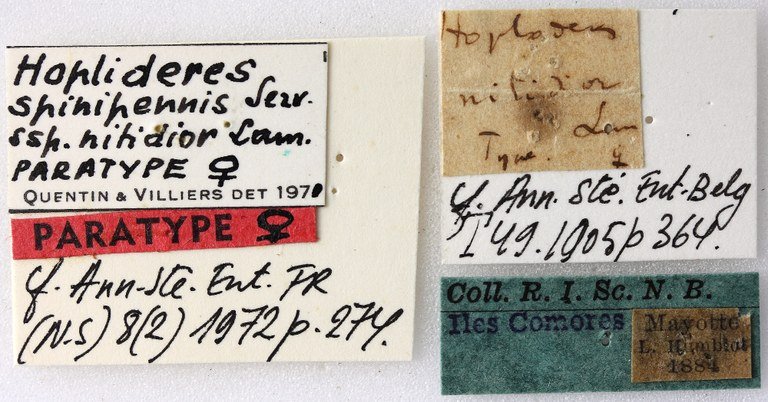 Hoplideres
spinipennis Serr.
ssp. nitidior Lam.
PARATYPE ♀
QUENTIN & VILLIERS DET 1970
PARATYPE ♀
cf. Ann. Sté. Ent. FR
(N.S) 8(2) 1972 p. 274.
Hoploderes
nitidior
Lam
Type. ♀
cf. Ann. Sté. Ent. Belg
T 49. 1905 p 364.
Coll. R. I. Sc. N. B.
Iles Comores
Mayotte
L. Humblot
1884